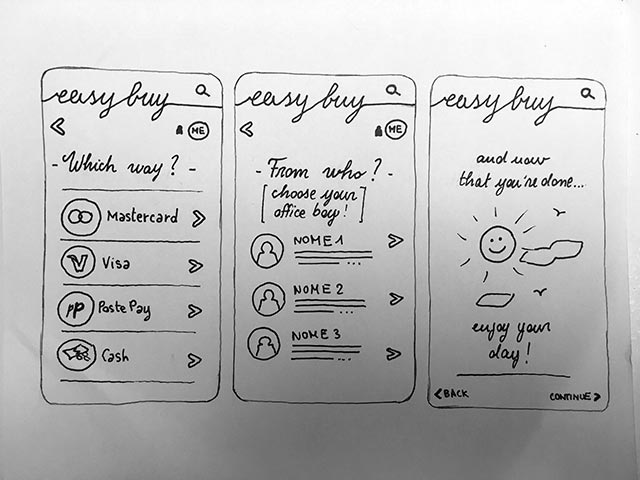 easy buy
ME
- Which way? -
Mastercard
V Visa
PP PostePay
Cash
easy buy
ME
- From who? -
[choose your
office boy!]
NOME 1
NOME 2
NOME 3
easy buy
and now
that you're done...
enjoy your
day!
<BACK
CONTINUE>